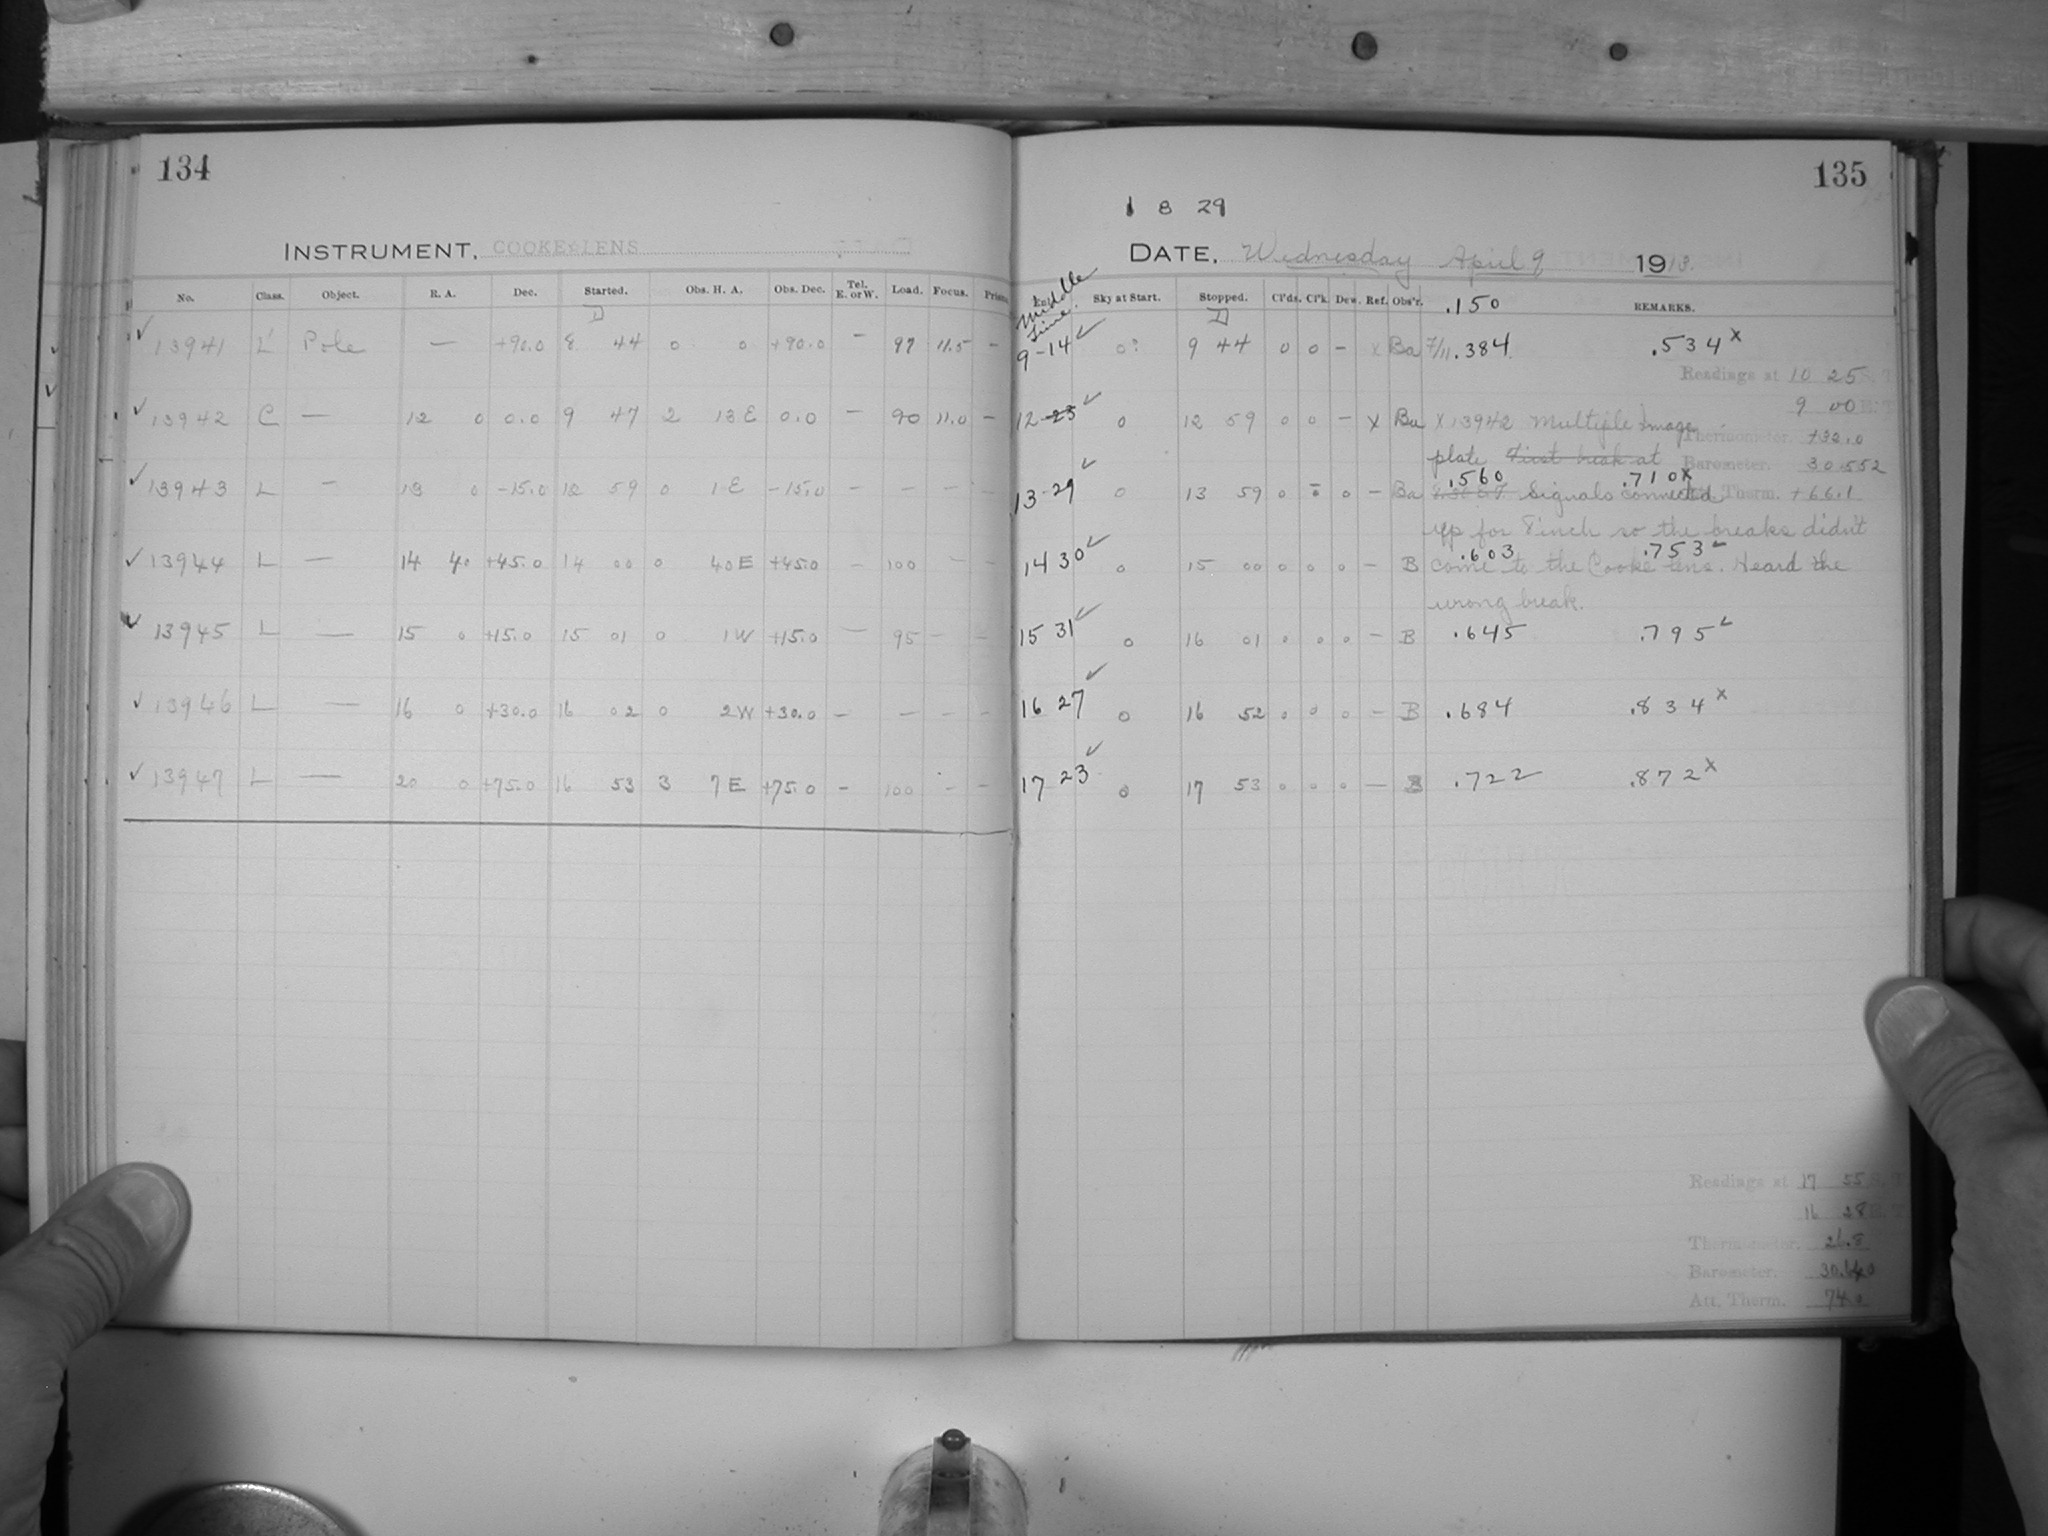 134
INSTRUMENT, COOKE LENS
No. Class. Object. R. A. Dec. Started. Obs. H. A. Obs. Dec. Tel. E. or W. Load. Focus.
D
13941 L Pole — +90.0 8 44 0 0 +90.0 — 97 11.5 —
13942 C — 12 0 0.0 9 47 2 13 E 0.0 — 90 11.0 —
13943 L — 13 0 -15.0 12 59 0 1 E -15.0 — — — —
13944 L — 14 40 +45.0 14 00 0 40 E +45.0 — 100 — —
13945 L — 15 0 +15.0 15 01 0 1 W +15.0 — 95 — —
13946 L — 16 0 +30.0 16 02 0 2 W +30.0 — — — —
13947 L — 20 0 +75.0 16 53 3 7 E +75.0 — 100 — —
135
1 8 29
DATE, Wednesday April 9 1913.
Middle Time. Sky at Start. Stopped. Cl'ds. Cl'k. Dew. Ref. Obs'r. .150 REMARKS.
D
9-14 ✓ 0? 9 44 0 0 — x Ba .384 .534 x
Readings at 10 25 S. T.
9 00
12-23 ✓ 0 12 59 0 0 — x Ba X 13942 Multiple image
Thermometer. +32.0
plate First break at
Barometer. 30.552
.560 .710 x
13-29 ✓ 0 13 59 0 0 0 — Ba Signals connected
Att. Therm. +66.1
up for 8 inch so the breaks didn't
.603 .753 ✓
14 30 ✓ 0 15 00 0 0 0 — B come to the Cooke lens. Heard the
wrong break.
15 31 ✓ 0 16 01 0 0 0 — B .645 .795 ✓
16 27 ✓ 0 16 52 0 0 0 — B .684 .834 x
17 23 ✓ 0 17 53 0 0 0 — B .722 .872 x
Readings at 17 55 S. T.
16 28
Thermometer. 26.8
Barometer.
Att. Therm. 74.0